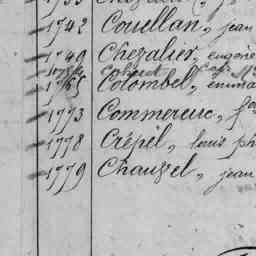 1742 Couellan, jean
1749 Chevalier, eugénie
1765 Colombel, emma
1773 Commereuc, f
1778 Crépel, louis ph
1779 Chauvel, jean